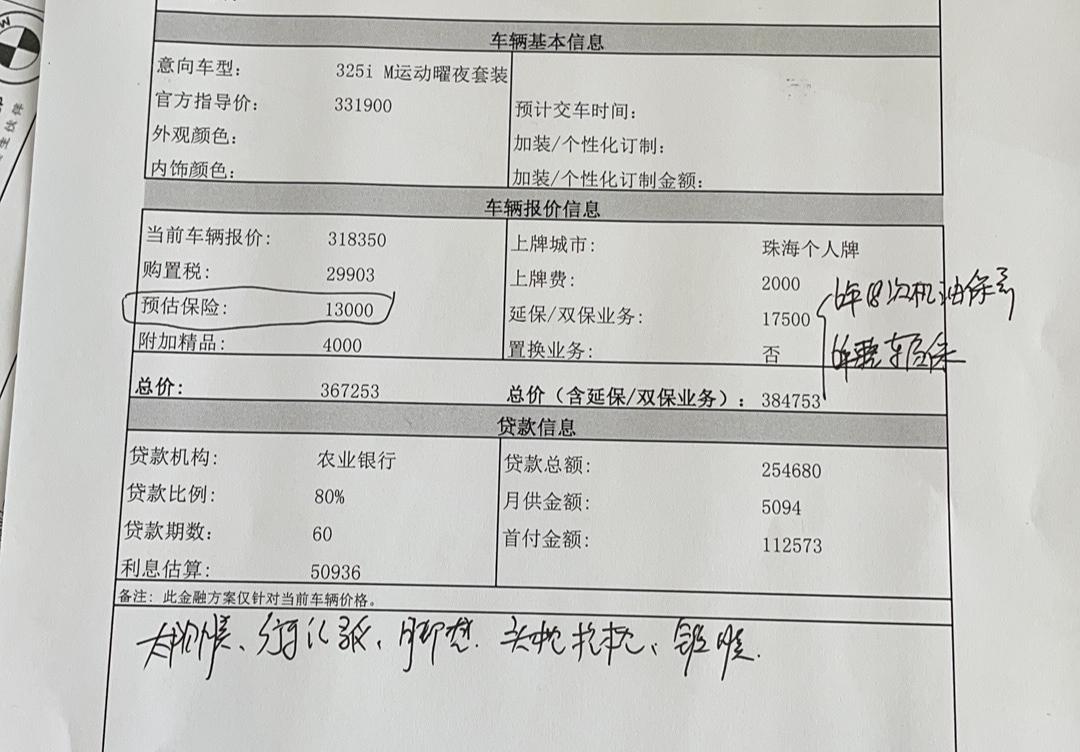 车辆基本信息
意向车型: 325i M运动曜夜套装
官方指导价: 331900 预计交车时间:
外观颜色: 加装/个性化订制:
内饰颜色: 加装/个性化订制金额:
车辆报价信息
当前车辆报价: 318350 上牌城市: 珠海个人牌
购置税: 29903 上牌费: 2000
预估保险: 13000 延保/双保业务: 17500 6年8次机油保养
附加精品: 4000 置换业务: 否
总价: 367253 总价（含延保/双保业务）: 384753
贷款信息
贷款机构: 农业银行 贷款总额: 254680
贷款比例: 80% 月供金额: 5094
贷款期数: 60 首付金额: 112573
利息估算: 50936
备注: 此金融方案仅针对当前车辆价格。
脚垫、头枕抱枕、